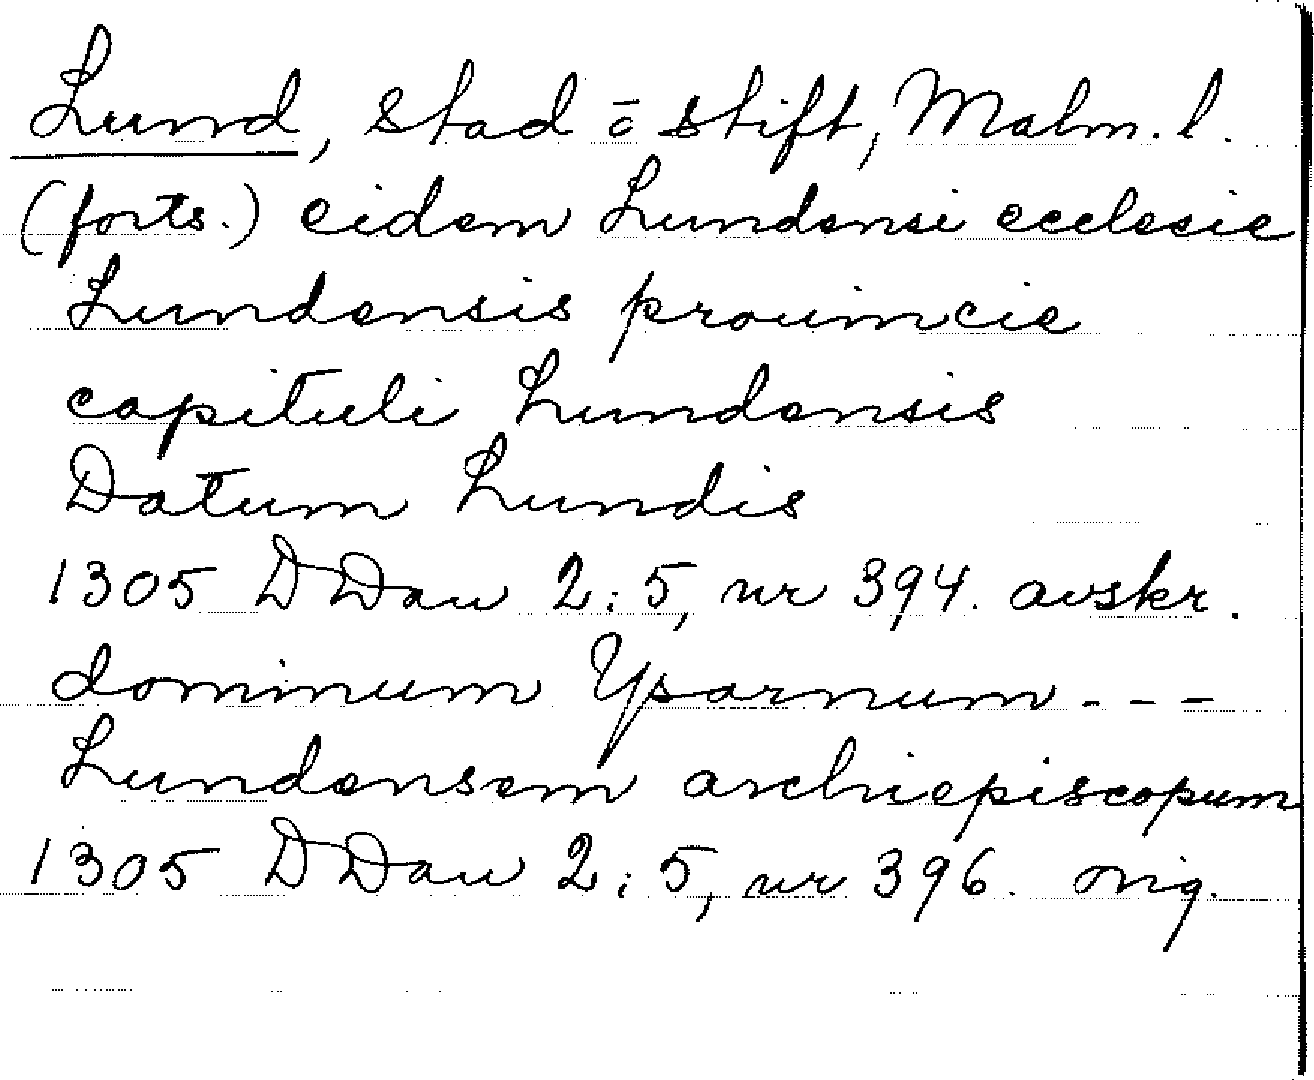 Lund, stad o̅ stift, Malm. l.
(forts.) eidem Lundensi ecclesie
Lundensis prouincie
capituli Lundensis
Datum Lundis
1305 DDan 2:5, nr 394. avskr.
dominum Ysarnum - - -
Lundensem archiepiscopum
1305 DDan 2:5, nr 396. orig.